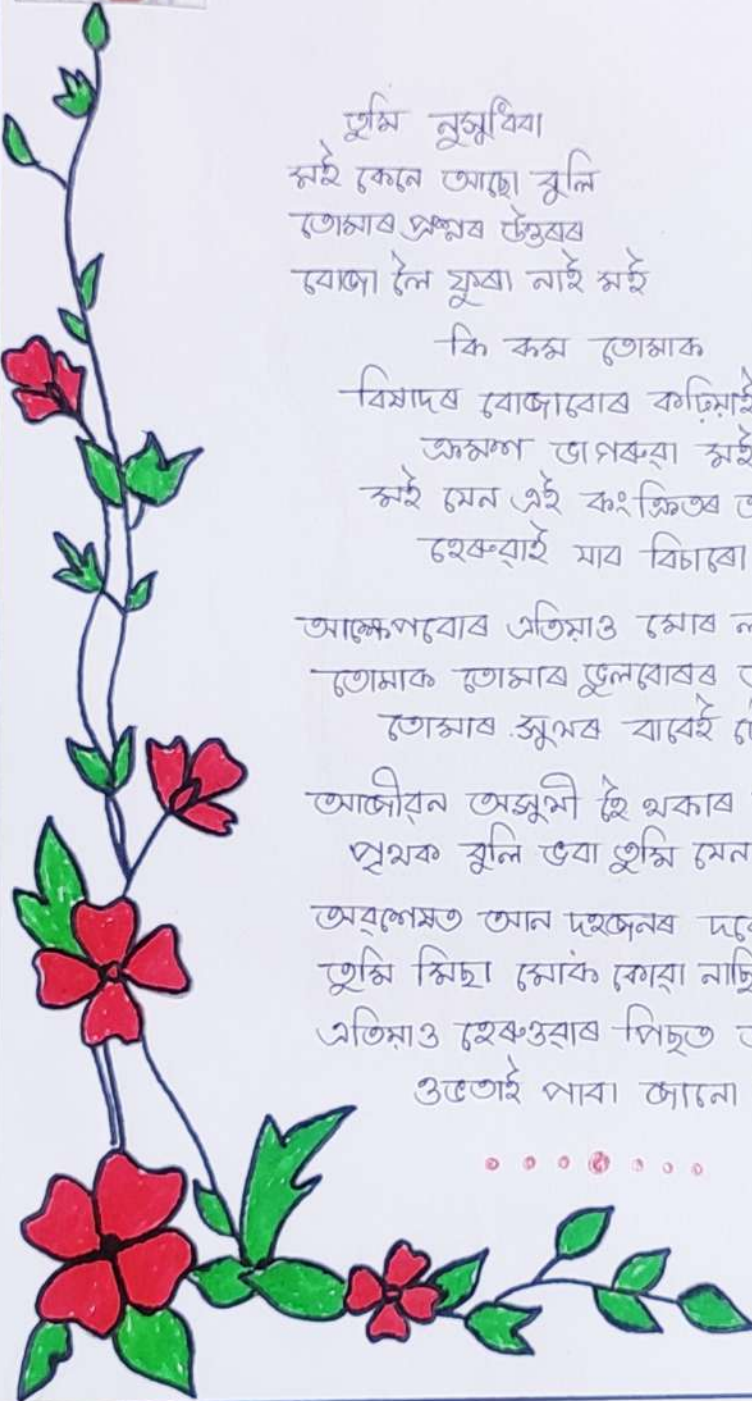 তুমি নুসুধিবা
মই কেনে আছো বুলি
তোমাৰ প্ৰশ্নৰ উত্তৰৰ
বোজা লৈ ফুৰা নাই মই
কি কম তোমাক
বিষাদৰ বোজাবোৰ কঢ়িয়াই
ক্ৰমশ ভাগৰুৱা মই
মই যেন এই কংক্ৰিতৰ
হেৰুৱাই যাব বিচাৰো
আক্ষেপবোৰ এতিয়াও মোৰ
তোমাক তোমাৰ ভুলবোৰৰ
তোমাৰ সুখৰ বাবেই
আজীৱন অসুখী হৈ থকাৰ
পৃথক বুলি ভবা তুমি যেন
অৱশেষত আন দহজনৰ
তুমি মিছা মোক কোৱা
এতিয়াও হেৰুওৱাৰ পিছত
ওভতাই পাবা জানো